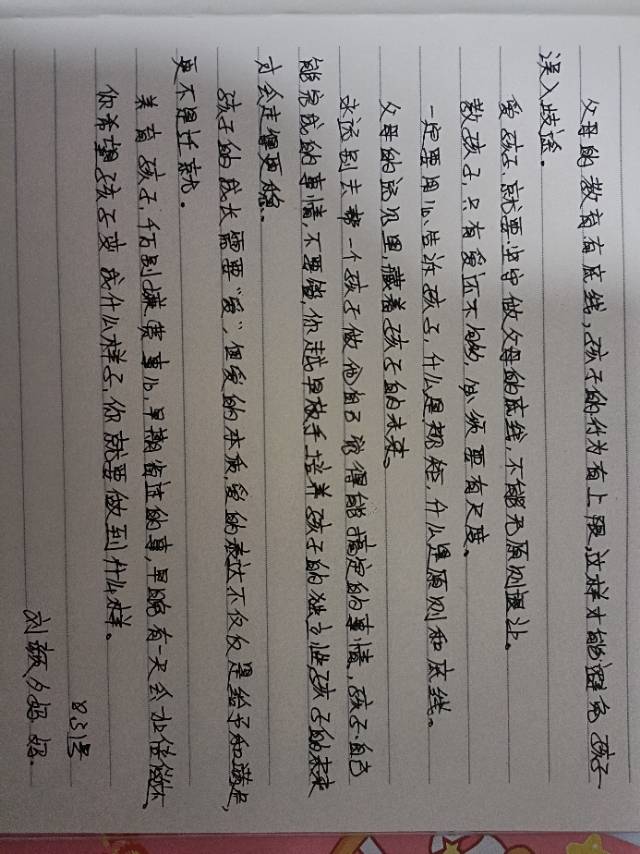 父母的教育有底线,孩子的行为有上限,这样才能避免孩子
误入歧途。
爱孩子,就要坚守做父母的底线,不能无原则退让。
教孩子,只有爱还不够,必须要有尺度。
一定要用心告诉孩子,什么是规矩,什么是原则和底线。
父母的远见里,藏着孩子的未来。
永远别去帮一个孩子做他自己觉得能搞定的事情,孩子自己
能完成的事情,不要做,你越早放手培养孩子的独立性,孩子的未来
才会走得更稳。
孩子的成长需要“爱”,但爱的本质,爱的表达不仅仅是给予和满足,
更不是迁就。
养育孩子,千万别嫌费事儿,早期省过的事,早晚有一天会加倍偿还。
你希望孩子变成什么样子,你就要做到什么样。
8.31号
刘颖夕妈妈。